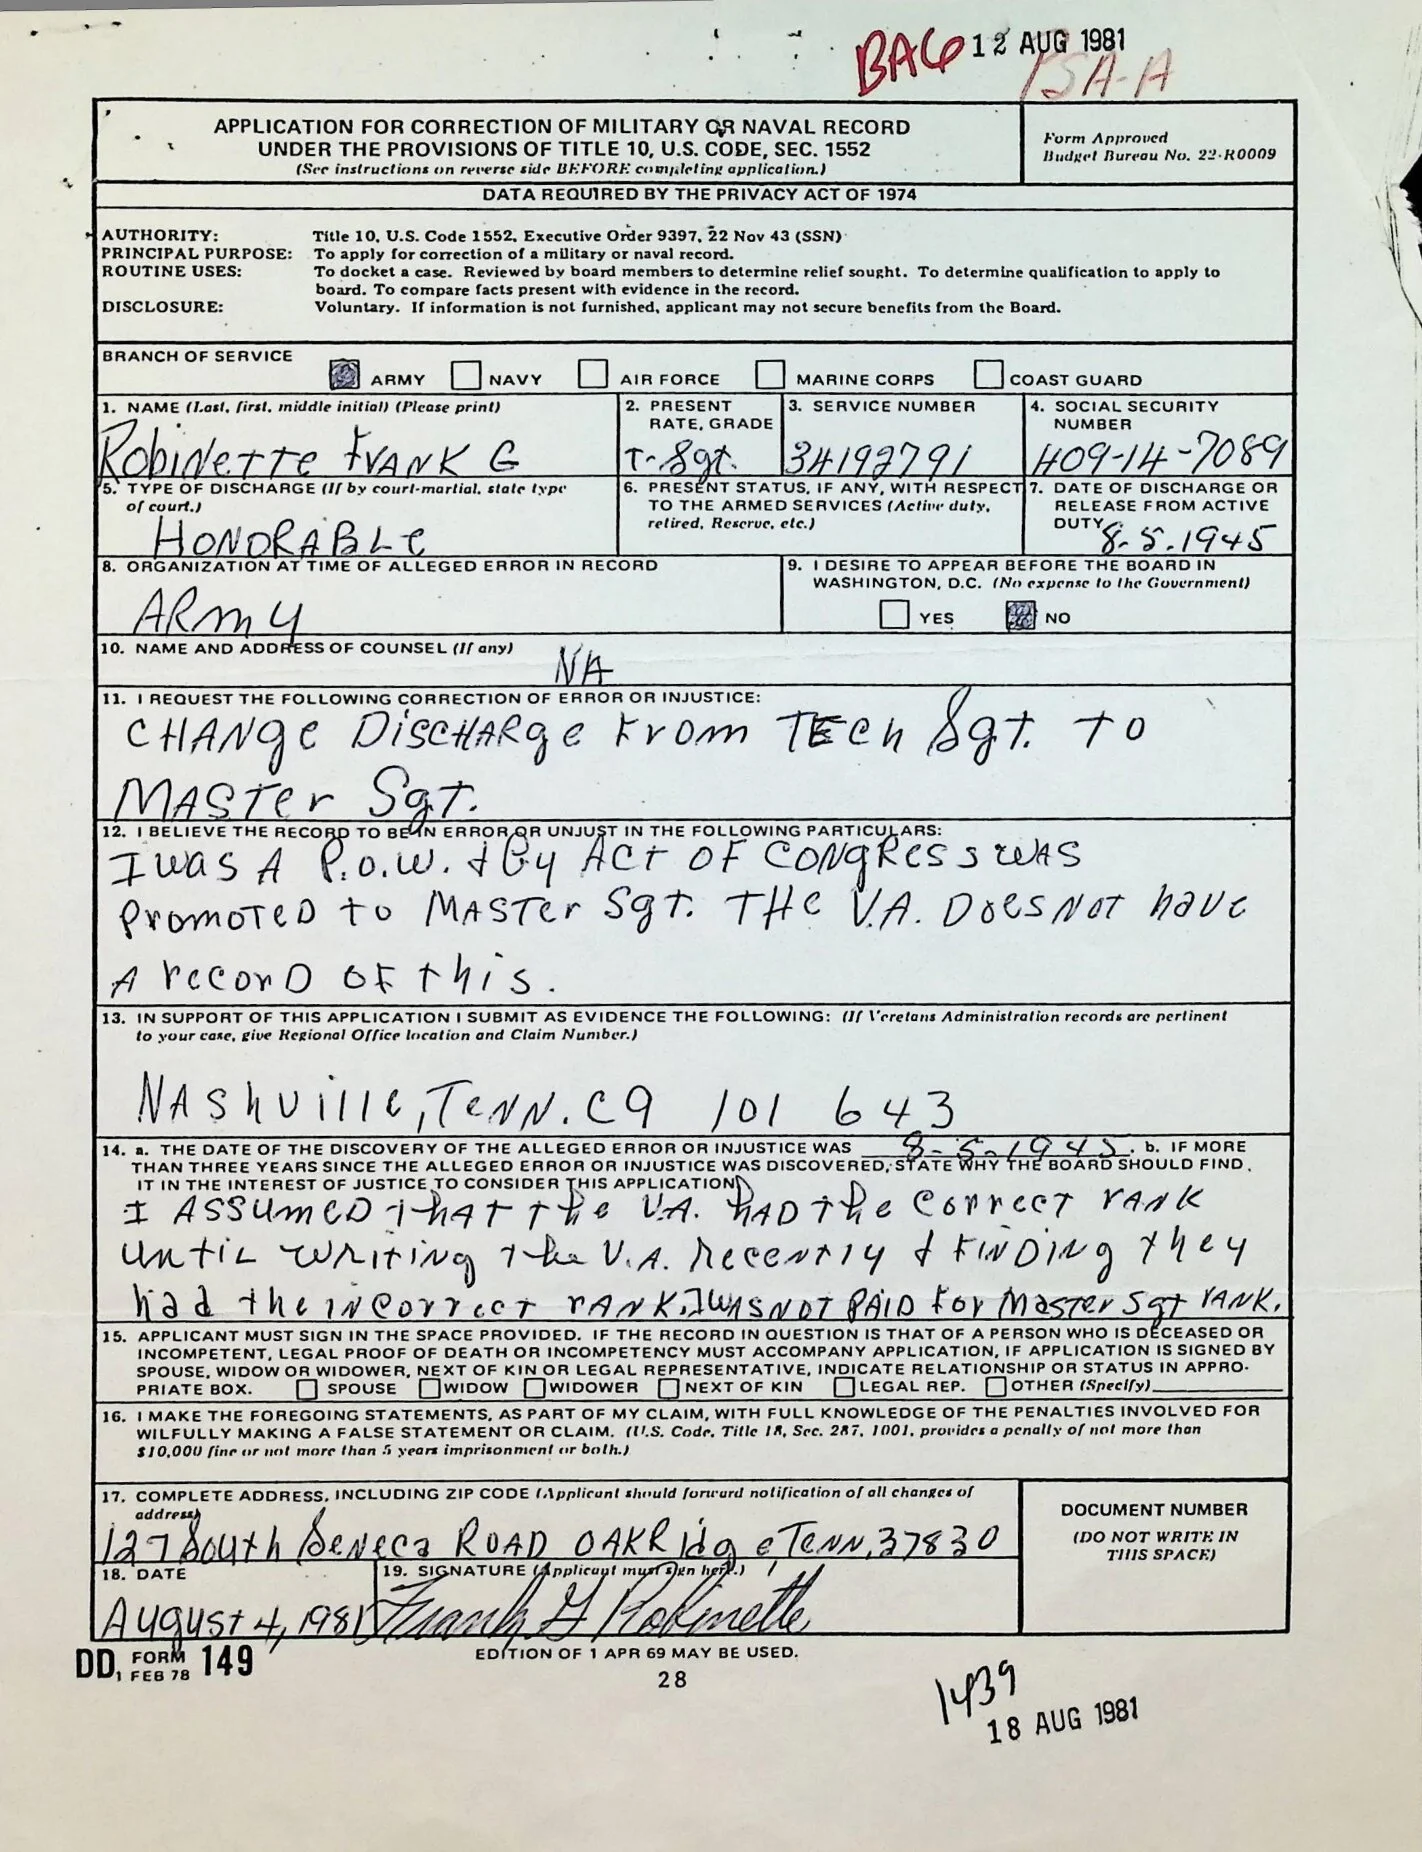 BAG 12 AUG 1981
PSA-A
APPLICATION FOR CORRECTION OF MILITARY OR NAVAL RECORD
UNDER THE PROVISIONS OF TITLE 10, U.S. CODE, SEC. 1552
(See instructions on reverse side BEFORE completing application.)
Form Approved
Budget Bureau No. 22-R0009
DATA REQUIRED BY THE PRIVACY ACT OF 1974
AUTHORITY: Title 10, U.S. Code 1552, Executive Order 9397, 22 Nov 43 (SSN)
PRINCIPAL PURPOSE: To apply for correction of a military or naval record.
ROUTINE USES: To docket a case. Reviewed by board members to determine relief sought. To determine qualification to apply to
board. To compare facts present with evidence in the record.
DISCLOSURE: Voluntary. If information is not furnished, applicant may not secure benefits from the Board.
BRANCH OF SERVICE
ARMY NAVY AIR FORCE MARINE CORPS COAST GUARD
1. NAME (Last, first, middle initial) (Please print)
Robinette Frank G
2. PRESENT
RATE, GRADE
T-Sgt.
3. SERVICE NUMBER
34192791
4. SOCIAL SECURITY
NUMBER
409-14-7089
5. TYPE OF DISCHARGE (If by court-martial, state type
of court.)
HONORABLE
6. PRESENT STATUS, IF ANY, WITH RESPECT
TO THE ARMED SERVICES (Active duty,
retired, Reserve, etc.)
7. DATE OF DISCHARGE OR
RELEASE FROM ACTIVE
DUTY
8-5-1945
8. ORGANIZATION AT TIME OF ALLEGED ERROR IN RECORD
ARMY
9. I DESIRE TO APPEAR BEFORE THE BOARD IN
WASHINGTON, D.C. (No expense to the Government)
YES NO
10. NAME AND ADDRESS OF COUNSEL (If any)
NA
11. I REQUEST THE FOLLOWING CORRECTION OF ERROR OR INJUSTICE:
CHANGE DISCHARGE FROM TECH Sgt. TO
MASTER Sgt.
12. I BELIEVE THE RECORD TO BE IN ERROR OR UNJUST IN THE FOLLOWING PARTICULARS:
I was A P.O.W. & By ACT OF CONGRESS WAS
PROMOTED to MASTER Sgt. THE V.A. DOES NOT have
A record OF this.
13. IN SUPPORT OF THIS APPLICATION I SUBMIT AS EVIDENCE THE FOLLOWING: (If Veretans Administration records are pertinent
to your case, give Regional Office location and Claim Number.)
NASHVille, TENN. C9 101 643
14. a. THE DATE OF THE DISCOVERY OF THE ALLEGED ERROR OR INJUSTICE WAS 8-5-1945. b. IF MORE
THAN THREE YEARS SINCE THE ALLEGED ERROR OR INJUSTICE WAS DISCOVERED, STATE WHY THE BOARD SHOULD FIND
IT IN THE INTEREST OF JUSTICE TO CONSIDER THIS APPLICATION
I ASSUMED THAT the V.A. HAD the Correct RANK
UNTIL writing the V.A. Recently & FINDING they
had the INCorrect RANK. I WAS NOT PAID for Master Sgt RANK.
15. APPLICANT MUST SIGN IN THE SPACE PROVIDED. IF THE RECORD IN QUESTION IS THAT OF A PERSON WHO IS DECEASED OR
INCOMPETENT, LEGAL PROOF OF DEATH OR INCOMPETENCY MUST ACCOMPANY APPLICATION, IF APPLICATION IS SIGNED BY
SPOUSE, WIDOW OR WIDOWER, NEXT OF KIN OR LEGAL REPRESENTATIVE, INDICATE RELATIONSHIP OR STATUS IN APPRO-
PRIATE BOX. SPOUSE WIDOW WIDOWER NEXT OF KIN LEGAL REP. OTHER (Specify)
16. I MAKE THE FOREGOING STATEMENTS, AS PART OF MY CLAIM, WITH FULL KNOWLEDGE OF THE PENALTIES INVOLVED FOR
WILFULLY MAKING A FALSE STATEMENT OR CLAIM. (U.S. Code, Title 18, Sec. 287, 1001, provides a penalty of not more than
$10,000 fine or not more than 5 years imprisonment or both.)
17. COMPLETE ADDRESS, INCLUDING ZIP CODE (Applicant should forward notification of all changes of
address)
127 South Seneca ROAD OAK Ridge, TENN. 37830
DOCUMENT NUMBER
(DO NOT WRITE IN
THIS SPACE)
18. DATE
August 4, 1981
19. SIGNATURE (Applicant must sign here.)
Frank G Robinette
DD FORM 1 FEB 78 149
EDITION OF 1 APR 69 MAY BE USED.
28
1439
18 AUG 1981